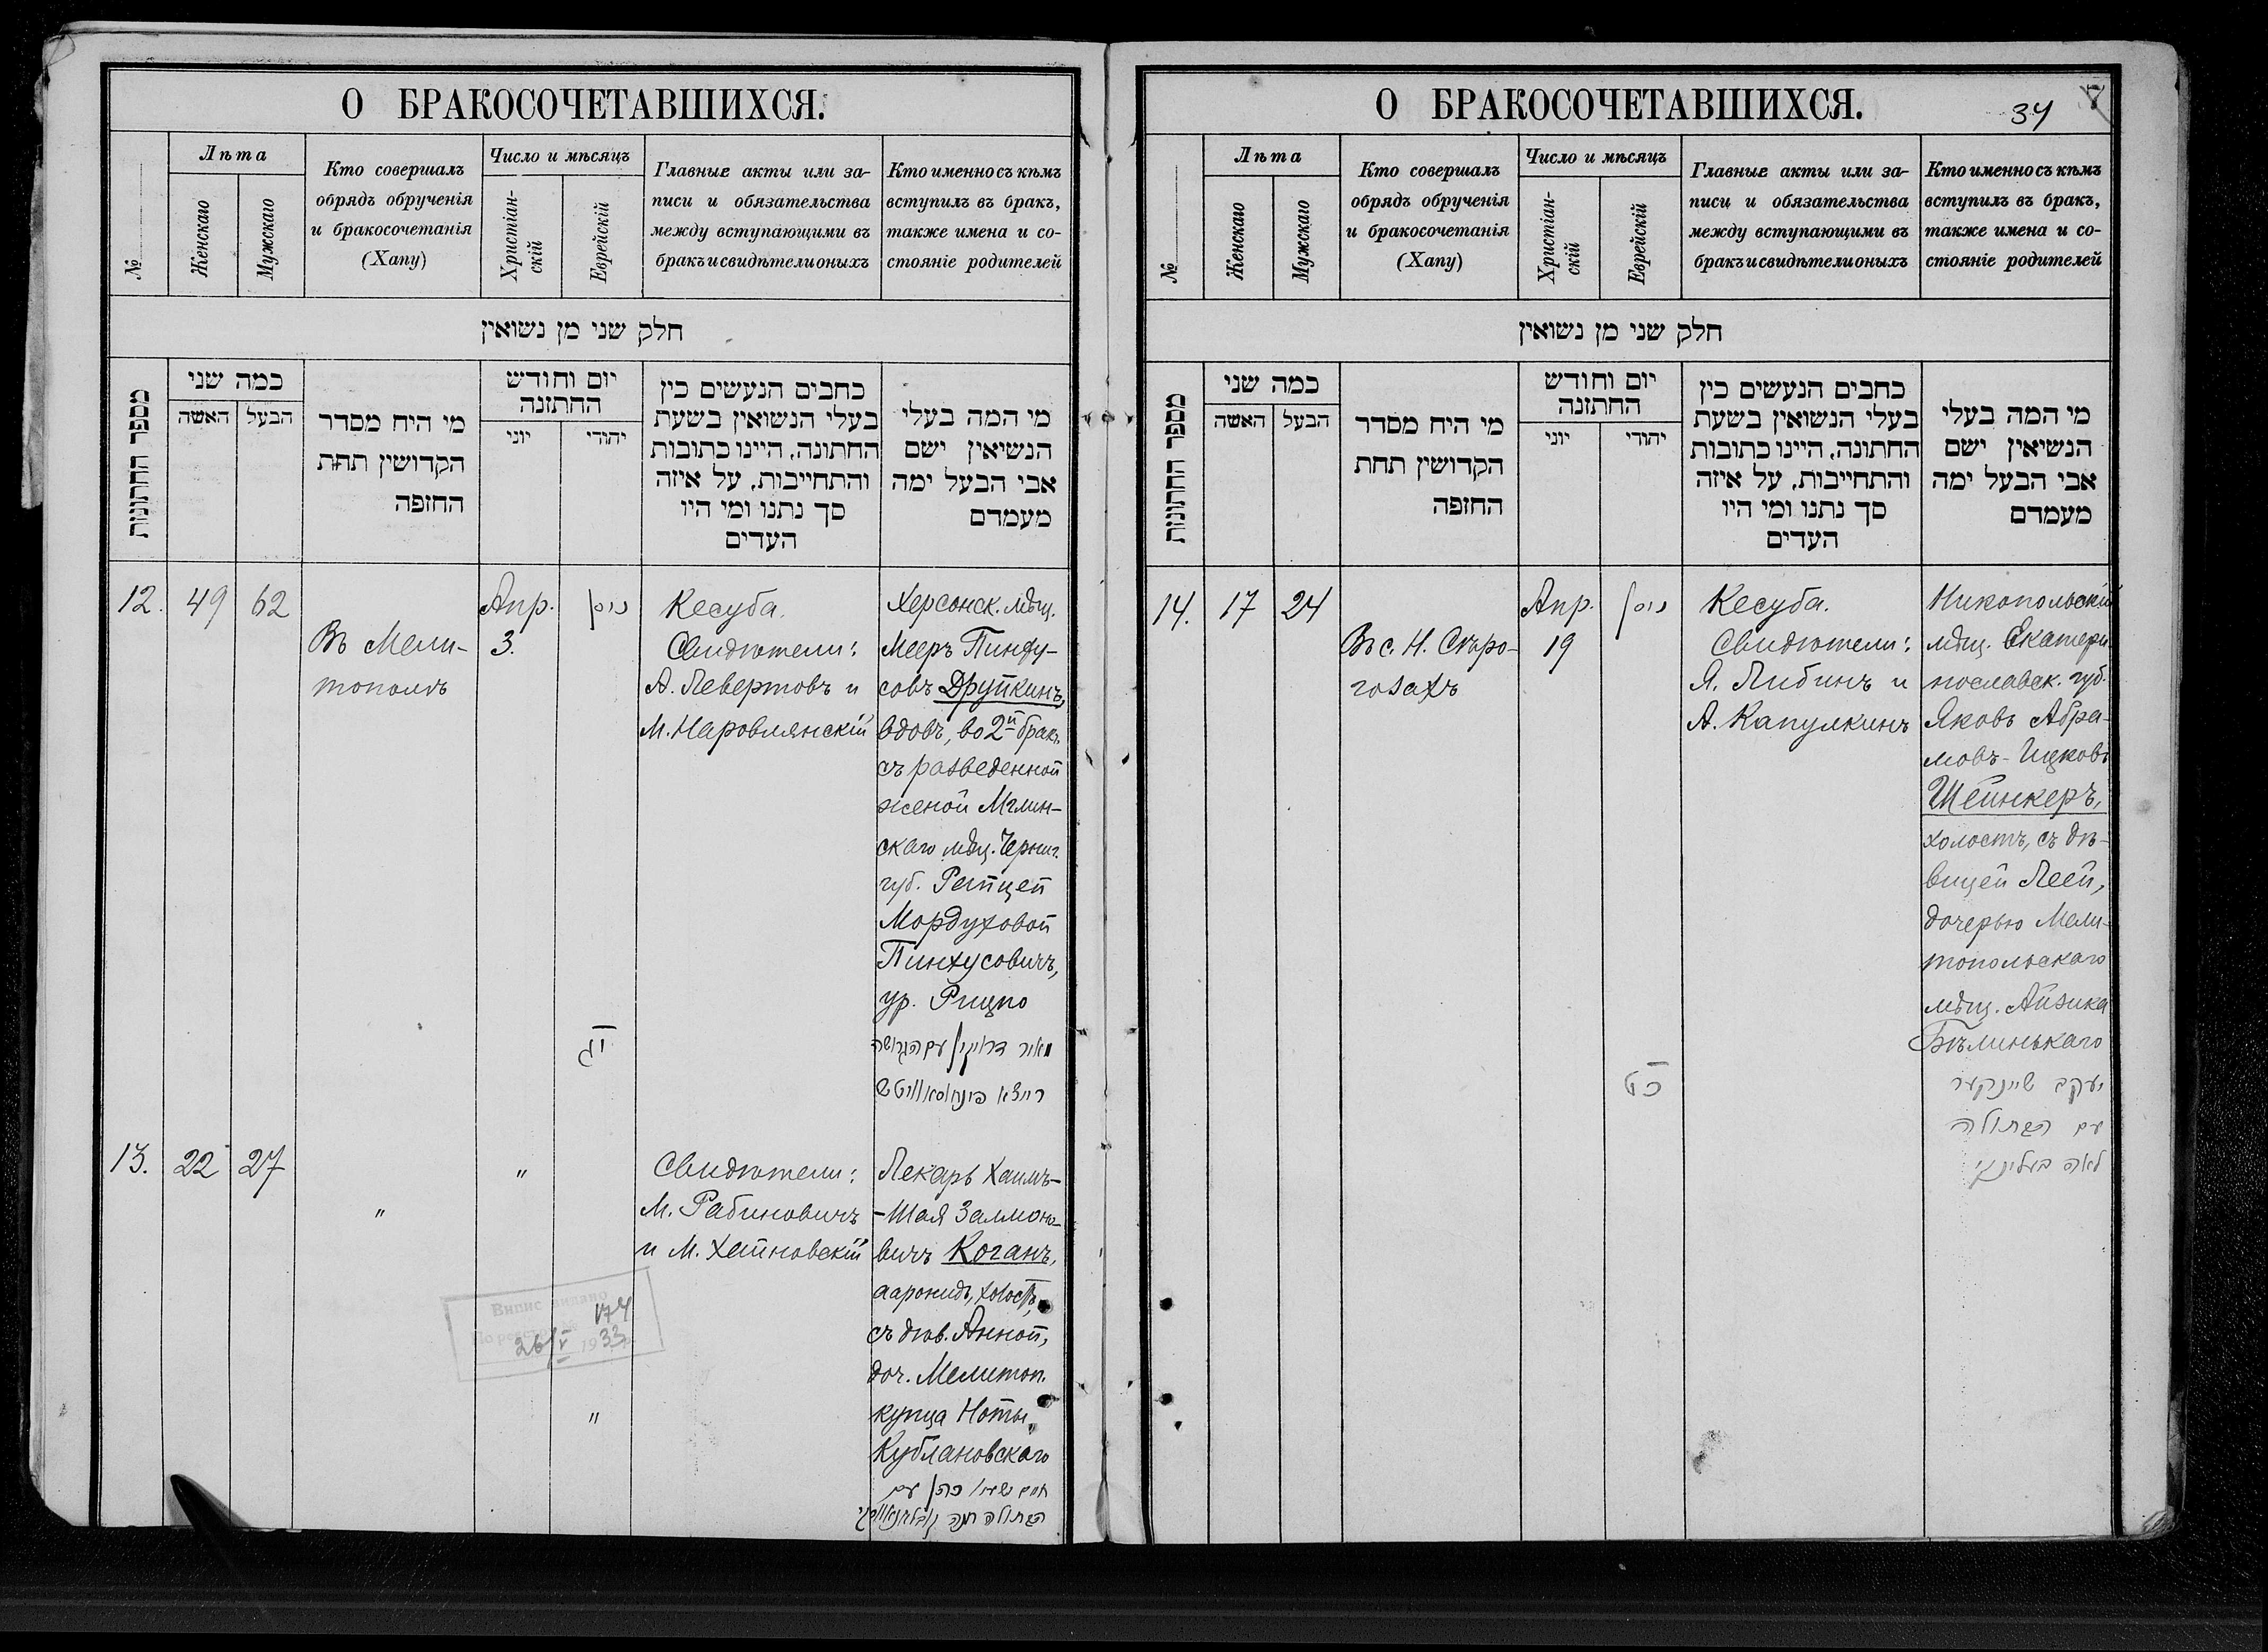 О БРАКОСОЧЕТАВШИХСЯ.
№
Лѣта
Женскаго
Мужскаго
Кто совершалъ
обрядъ обрученія
и бракосочетанія
(Хапу)
Число и мѣсяцъ
Христіан-
скій
Еврейскій
Главные акты или за-
писи и обязательства
между вступающими въ
бракъ и свидѣтели оныхъ
Кто именно съ кѣмъ
вступилъ въ бракъ,
также имена и со-
стояніе родителей
חלק שני מן נשואין
מספר החתונות
כמה שני
האשה
הבעל
מי היח מסדר
הקדושין תחת
החזפה
יום וחודש
החתזנה
יוני
יהודי
כחבים הנעשים כין
בעלי הנשואין בשעת
החתונה, היינו כתובות
והתחייבות, על איזה
סך נתנו ומי היו
העדים
מי המה בעלי
הנשיאין ישם
אבי הבעל ימה
מעמדם
12.
49
62
Въ Мели-
тополѣ
Апр.
3.
ניסן
יג
Кесуба.
Свидѣтели:
А. Левертовъ и
М. Наровлянскій
Херсонск. мѣщ.
Мееръ Пинху-
совъ Друпкинъ,
вдовъ, во 2й бракъ
съ разведенной
женой Мглин-
скаго мѣщ. Черниг.
губ. Рейцей
Мордуховой
Пинхусовичъ,
ур. Рицпо
מאיר דרופקין עם הגרושה
רייצא פינחוסאוויטש
13.
22
27
"
"
"
Свидѣтели:
М. Рабиновичъ
и М. Хейновскій
Лекарь Хаимъ-
-Шая Залмоно-
вичъ Коганъ,
ааронидъ, холостъ,
съ дѣв. Анной,
доч. Мелитоп.
купца Ноты
Кублановскаго
חיים ישעי' כהן עם
הבתולה חנה קובלאנאווסקי
Випис видано
174
26/V 1933
О БРАКОСОЧЕТАВШИХСЯ.
34
№
Лѣта
Женскаго
Мужскаго
Кто совершалъ
обрядъ обрученія
и бракосочетанія
(Хапу)
Число и мѣсяцъ
Христіан-
скій
Еврейскій
Главные акты или за-
писи и обязательства
между вступающими въ
бракъ и свидѣтели оныхъ
Кто именно съ кѣмъ
вступилъ въ бракъ,
также имена и со-
стояніе родителей
חלק שני מן נשואין
מספר החתונות
כמה שני
האשה
הבעל
מי היח מסדר
הקדושין תחת
החזפה
יום וחודש
החתזנה
יוני
יהודי
כחבים הנעשים כין
בעלי הנשואין בשעת
החתונה, היינו כתובות
והתחייבות, על איזה
סך נתנו ומי היו
העדים
מי המה בעלי
הנשיאין ישם
אבי הבעל ימה
מעמדם
14.
17
24
Въ с. Н. Сѣро-
гозахъ
Апр.
19
ניסן
כט
Кесуба.
Свидѣтели:
Я. Либинъ и
А. Капулкинъ
Никопольскій
мѣщ. Екатери
нославск. губ.
Яковъ Абра-
мовъ-Ицковъ
Шейнкеръ,
холостъ, съ дѣ-
вицей Леей,
дочерью Мели-
топольскаго
мѣщ. Айзика
Бѣлинькаго
יעקב שיינקער
עם הבתולה
לאה בעלינקי